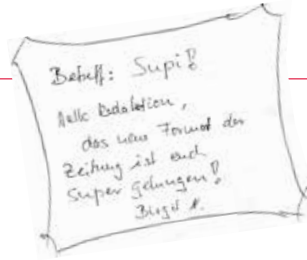 Betreff: Supi!
Hallo Redaktion,
das neue Format der
Zeitung ist euch
super gelungen!
Birgit K.